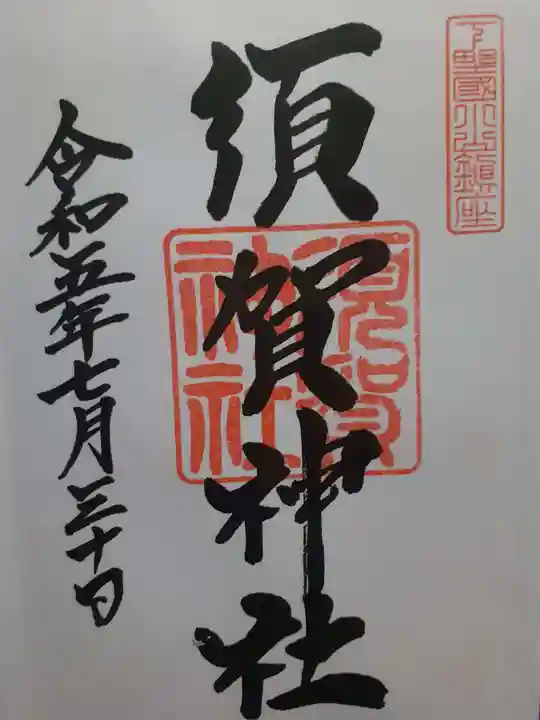 下野國小山鎮座
須賀神社
須賀神社
令和五年七月三十日